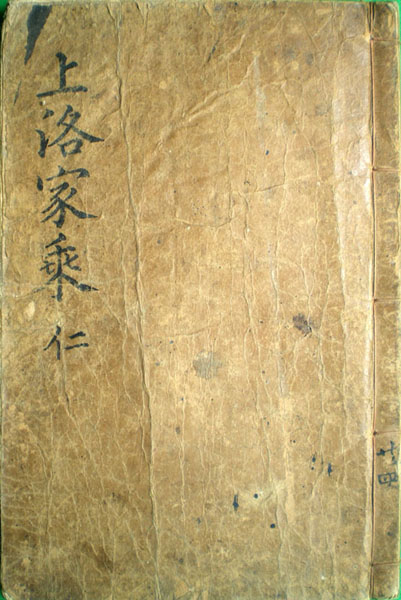 上洛家乘 仁
廿四